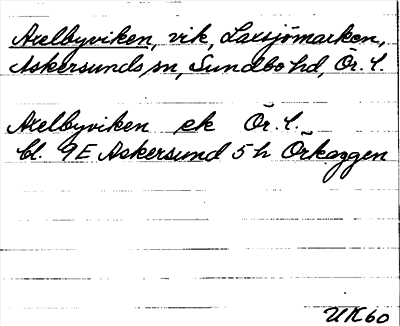 Axelbyviken, vik, Laxsjömarken,
Askersunds sn, Sundbo hd, Ör. l.
Axelbyviken ek Ör. l.
bl. 9E Askersund 5 h Örkaggen
UK60